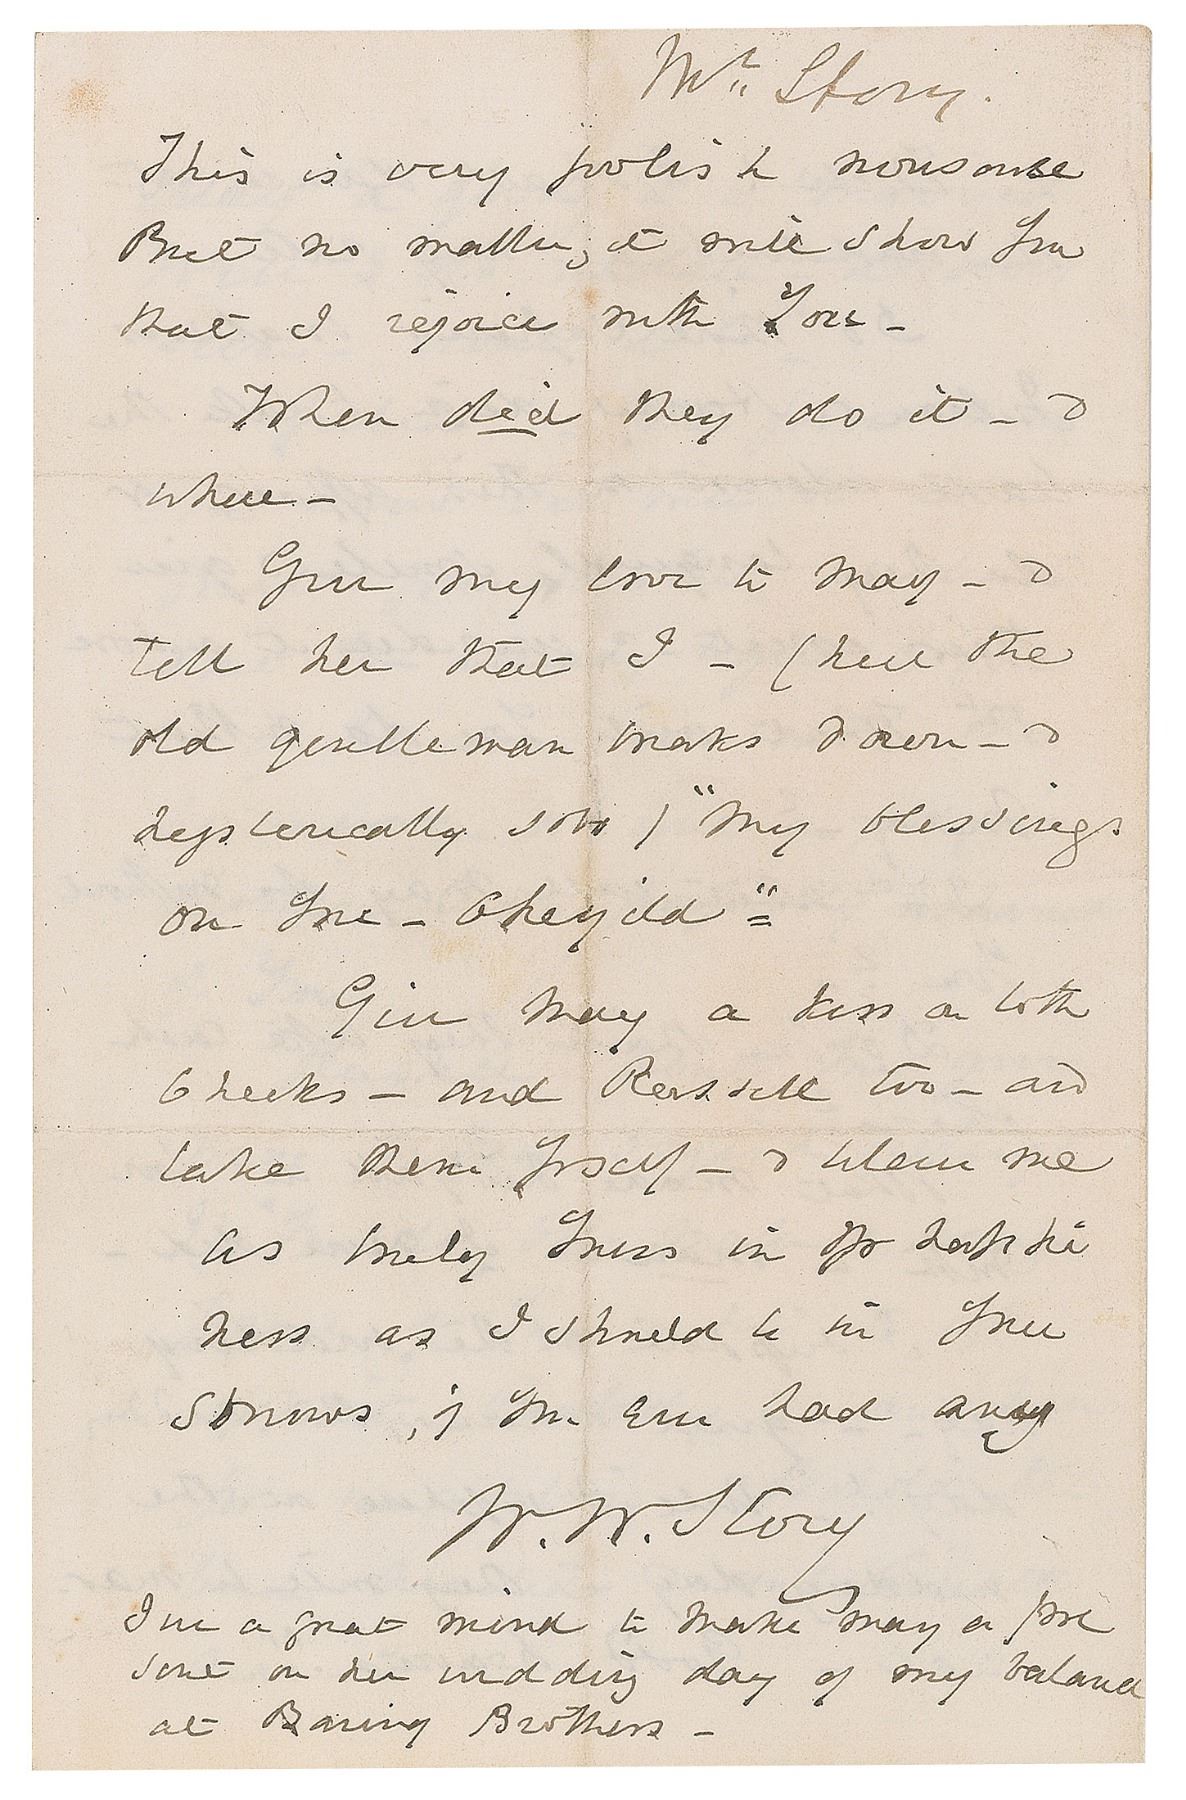 Mr. Story.
This is very foolish nonsense
But no matter, it will show you
that I rejoice with You –
When did they do it – &
where –
Give my love to May – &
tell her that I – (here the
old gentleman breaks down – &
hysterically sobs) "My blessings
on you – Cheyild"
Give May a kiss on both
Cheeks – and Russell too – and
take them yrself – & believe me
as truly Yours in yr happi
ness as I should be in your
sorrows, if you ever had any
W. W. Story
I've a great mind to make May a pre
sent on her wedding day of my balance
at Baring Brothers –